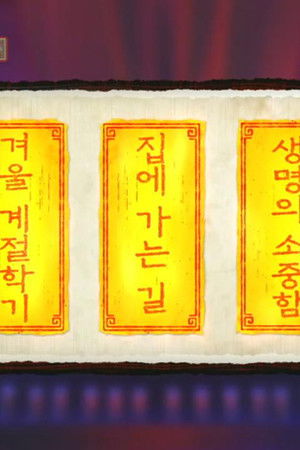 겨울 계절학기
집에 가는 길
생명의 소중함